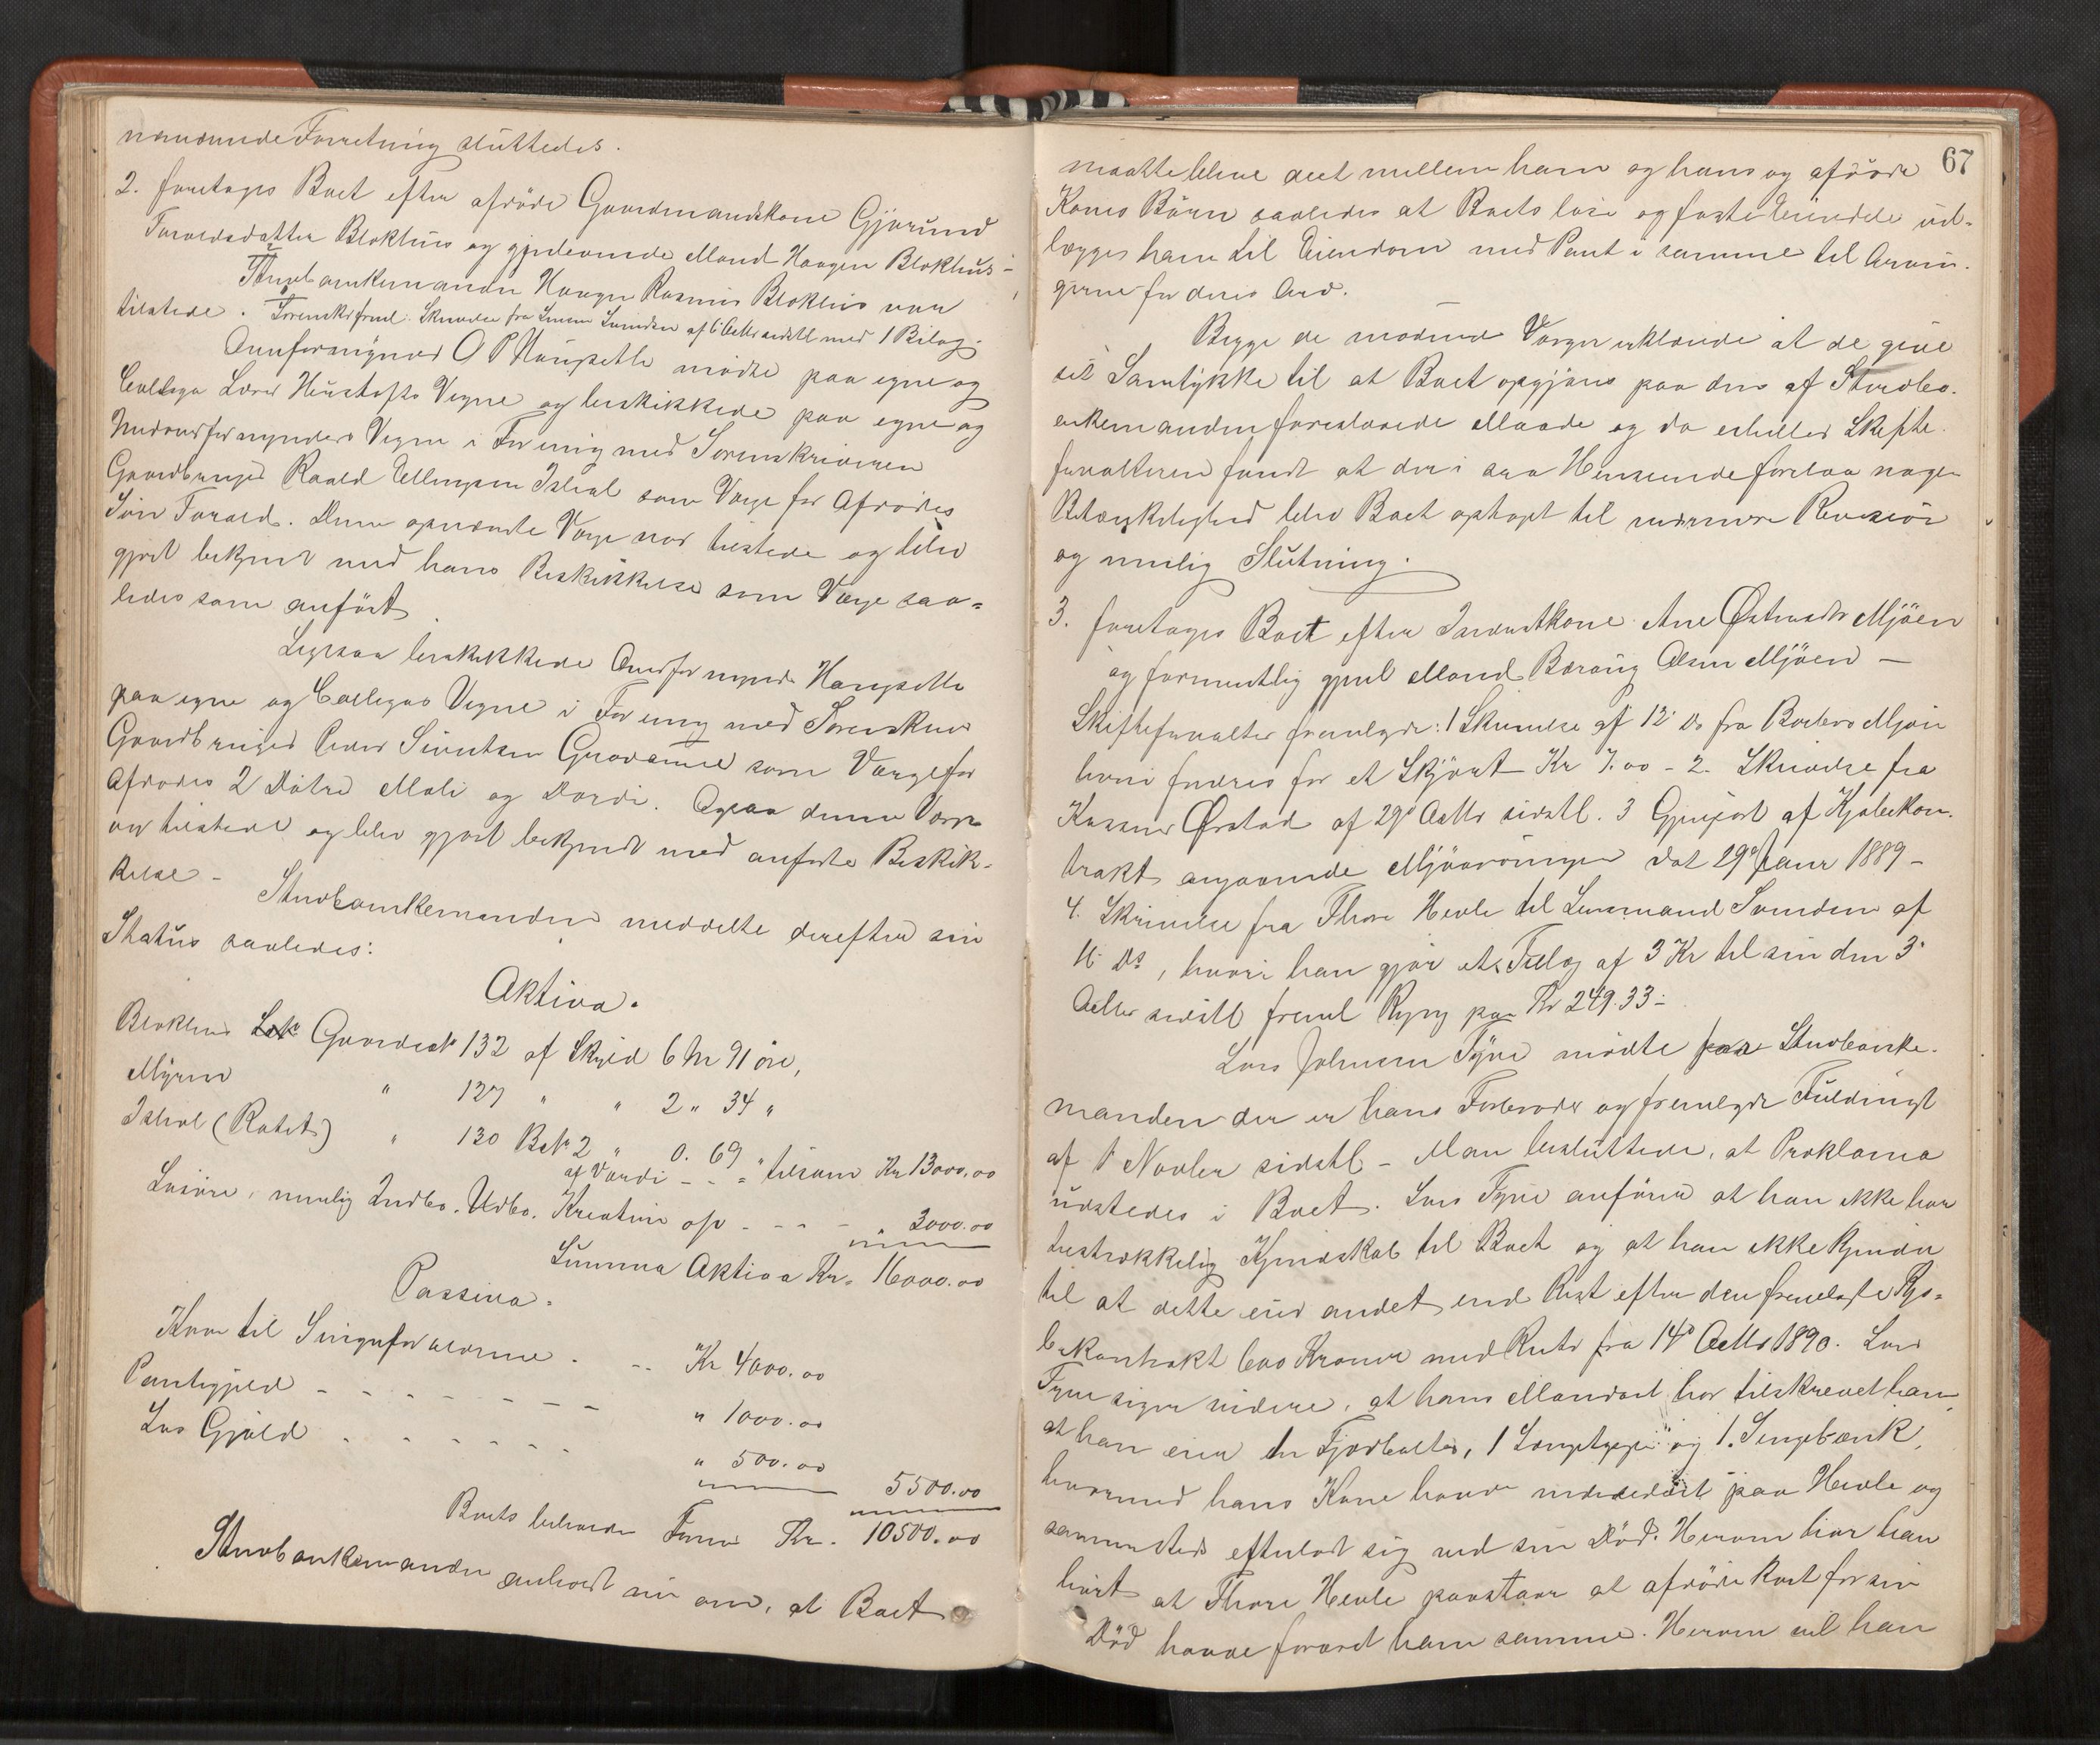 nærværende Forretning sluttedes.
2. foretoges Boet efter afdøde Gaardmandskone Gjørund
Taraldsdatter Blokhus og gjenlevende Mand Haagen Blokhus –
Stervboenkemanden Haagen Rasmus Blokhus var
tilstede. Sorenskr freml. Skrivelse fra Lensm Svendsen af 6 Octb sidstl med 1 Bilag.
Overformynder O P Haugsetle mødte paa egne og
Collega Lærer Hustofts Vegne og beskikkede paa egne og
Medoverformynders Vegne i Forening med Sorenskriveren
Gaardbruger Roald Ellingsen Ishol som Værge for Afdødes
Søn Tarald. Denne opnævnte Værge var tilstede og blev
gjort bekjent med hans Beskikkelse som Værge saa=
ledes som anført
Ligesaa beskikkede Overformynder Haugsetle
paa egne og Collegas Vegne i Forening med Sorenskriv
Gaardbruger Peder Sivertsen som Værge for
Afdødes 2 Døtre Mali og Dordi. Ogsaa denne Værge
var tilstede og blev gjort bekjendt med anførte Beskik-
kelse –
Stervboenkemanden meddelte derefter sin
Status saaledes:
Aktiva.
Blokhus Gaardsnr 132 af Skyld 6 M 91 øre,
Myren " 127 " " 2 " 34 "
Ishol (Ratet) " 130 Bsnr 2 " 0. 69 "
af Værdi - - = tilsam Kr 13000.00
Løsøre, nemlig Indbo. Udbo. Kreaturer osv - - - - " 3000.00
Summa Aktiva Kr. 16000.00
Passiva.
Kaar til Svigerforældrene . -- Kr 4000.00
Pantegjeld - - - - - - - - - " 1000.00
Løs Gjæld . - - - - - - " 500.00
5500.00
Boets beholdne Formue Kr. 10500.00
Stervboenkemanden anholdt nu om, at Boet
67
maatte blive deelt mellem ham og hans og afdøde
Kones Børn saaledes at Boets løse og faste Eiendele ud-
lægges ham til Eiendom med Pant i samme til Arvin-
gerne for deres Arv. –
Begge de mødende Værger erklærede at de give
sit Samtykke til at Boet opgjøres paa den af Stervbo-
enkemanden foreslaaede Maade og da eiheller Skifte-
forvalteren fandt at der i saa Henseende forelaa nogen
Betænkelighed blev Boet optaget til nærmere Revision
og mulig Slutning.
3. foretoges Boet efter Inderstkone Ane Østensdtr Mjøen
og formentlig gjenl Mand Baraug Olsen Mjøen –
Skifteforvalter fremlagde: 1 Skrivelse af 12 ds fra Mjøen
hvori fordres for et Skjørt Kr 7.00 – 2. Skrivelse fra
Rasmus Ørstad af 29de Octbr sidstl. 3 Gjenpart af Kjøbekon-
trakt angaaende Mjøarøningen dat 29de Janr 1889 –
4. Skrivelse fra Thore Hevle til Lensmand Svendsen af
11 ds, hvori han gjør et Tillæg af 3 Kr til sin den 3
Octbr sidstl freml Regng paa Kr 249.33 –
Lars Johnsen Fyne mødte for Stervboenke-
manden der er hans Farbroder og fremlagde Fuldmagt
af 1 Novber sidstl – Man besluttede, at Proklama
udstedes i Boet. Lars Fyne anfører at han ikke har
tilstrækkelig Kjendskab til Boet og at han ikke kjender
til at dette eier andet end Rest efter den fremlagte Kjø-
bekontrakt 600 Kroner med Rente fra 14de Octbr 1890. Lars
Fyne siger videre, at hans Mandant har tilskrevet ham,
at han eier Fjorbaater, 1 og 1 Sengebænk,
hvormed hans Kone havde paa Hevle og
sammesteds efterladt sig ved sin Død. Herom har han
hørt at Thore Hevle paastaar at afdøde kort før sin
Død havde foræret ham samme. Herom vil han